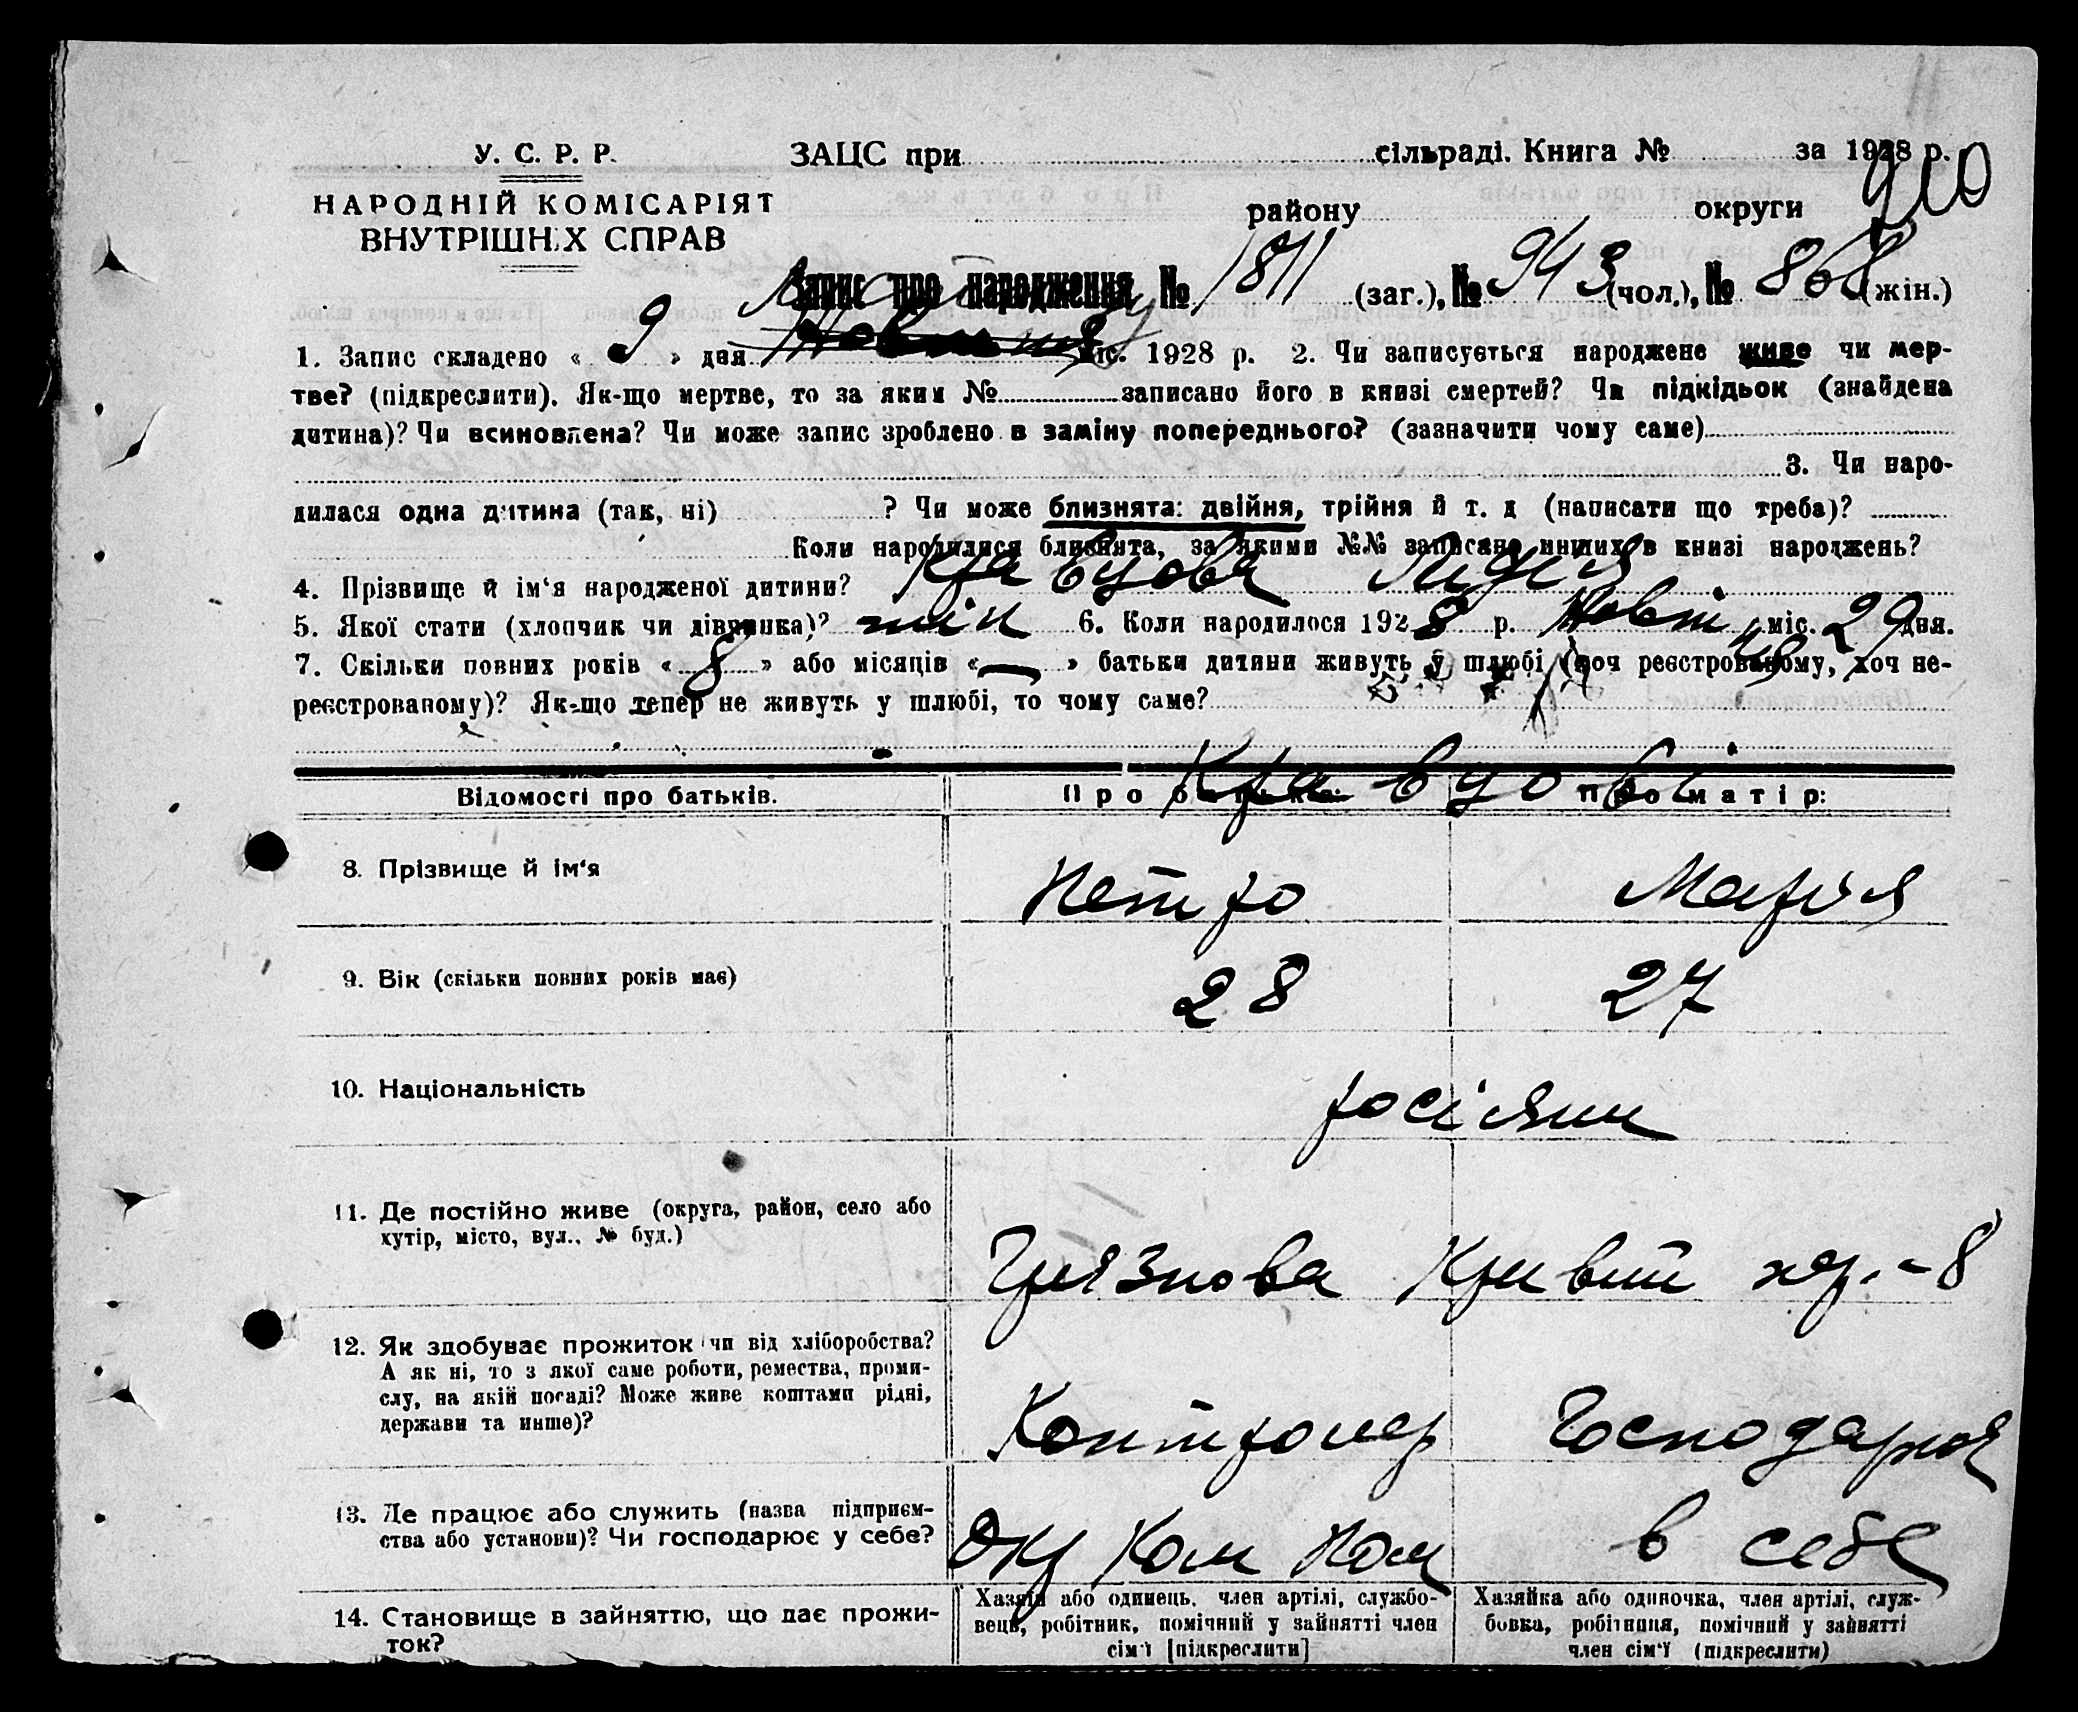 У. С. Р. Р.
ЗАЦС при сільраді. Книга № за 1928 р.
910
НАРОДНІЙ КОМІСАРІЯТ
ВНУТРІШНІХ СПРАВ
району округи
Запис про народження № 1811 (заг.), № 943 (чол.), № 868 (жін.)
1. Запис складено « 9 » дня міс. 1928 р. 2. Чи записується народжене живе чи мер-
тве? (підкреслити). Як-що мертве, то за яким № записано його в книзі смертей? Чи підкідьок (знайдена
дитина)? Чи всиновлена? Чи може запис зроблено в заміну попереднього? (зазначити чому саме)
3. Чи наро-
дилася одна дитина (так, ні) ? Чи може близнята: двійня, трійня й т. д (написати що треба)?
Коли народилися близнята, за якими №№ записано инших в книзі народжень?
4. Прізвище й ім‘я народженої дитини? Кравцова Лидия
5. Якої стати (хлопчик чи дівчинка)? жін 6. Коли народилося 1928 р. Жовт міс. 29 дня.
7. Скільки повних років « 8 » або місяців « — » батьки дитини живуть у шлюбі (хоч реєстрованому, хоч не-
реєстрованому)? Як-що тепер не живуть у шлюбі, то чому саме?
Відомості про батьків. Про батька: Про матір:
Кравцові
8. Прізвище й ім‘я Петро Марія
9. Вік (скільки повних років має) 28 27
10. Національність росіяни
11. Де постійно живе (округа, район, село або
хутір, місто, вул., № буд.)
Грязнова Кривий пер. - 8
12. Як здобуває прожиток чи від хліборобства?
А як ні, то з якої саме роботи, ремества, проми-
слу, на якій посаді? Може живе коштами рідні,
держави та инше)?
Контролер Господарка
13. Де працює або служить (назва підприєм-
ства або установи)? Чи господарює у себе?
Окр Ком Пом в себе
14. Становище в зайняттю, що дає прожи-
ток?
Хазяїн або одинець, член артілі, службо-
вець, робітник, помічний у зайнятті член
сім‘ї [підкреслити]
Хазяйка або одиночка, член артілі, служ-
бовка, робітниця, помічний у зайнятті
член сім‘ї (підкреслити)